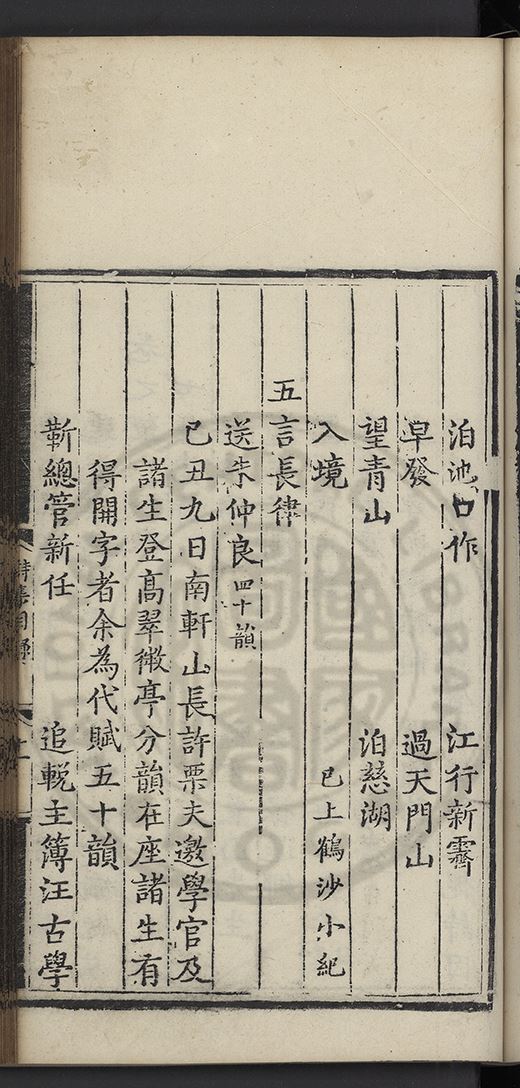 泊池口作　江行新霽
早發　過天門山
望青山　泊慈湖
入境　已上鶴沙小紀
五言長律
送朱仲良四十韻
己丑九日南軒山長許栗夫邀學官及
諸生登高翠微亭分韻在座諸生有
得開字者余為代賦五十韻
靳總管新任　追輓主簿汪古學
詩集目錄